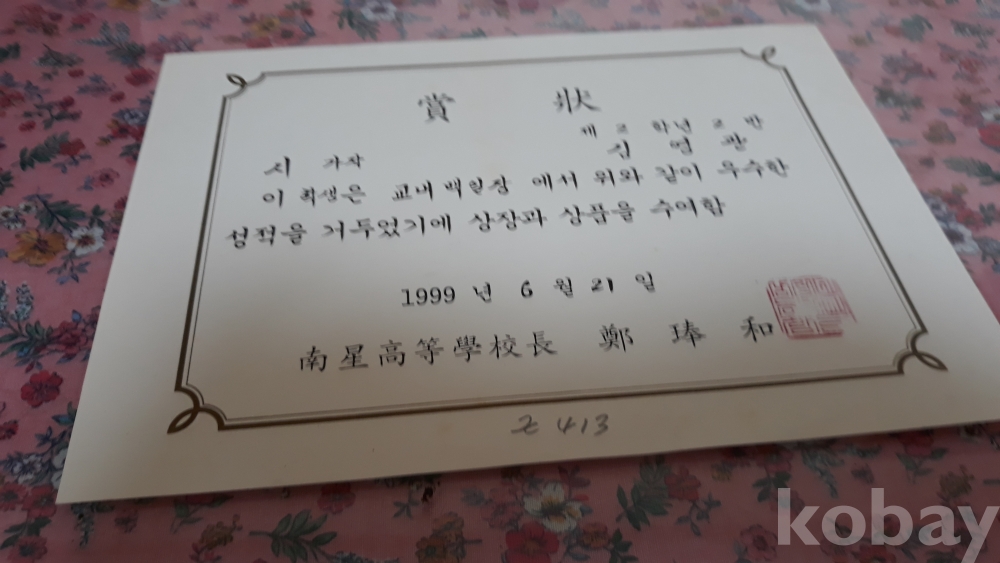 賞 狀
제 2 학년 2 반
시 가작
심 영 관
이 학생은 교내 백일장 에서 위와 같이 우수한
성적을 거두었기에 상장과 상품을 수여함
1999 년 6 월 21 일
南星高等學校長 鄭 琫 和
413
kobay